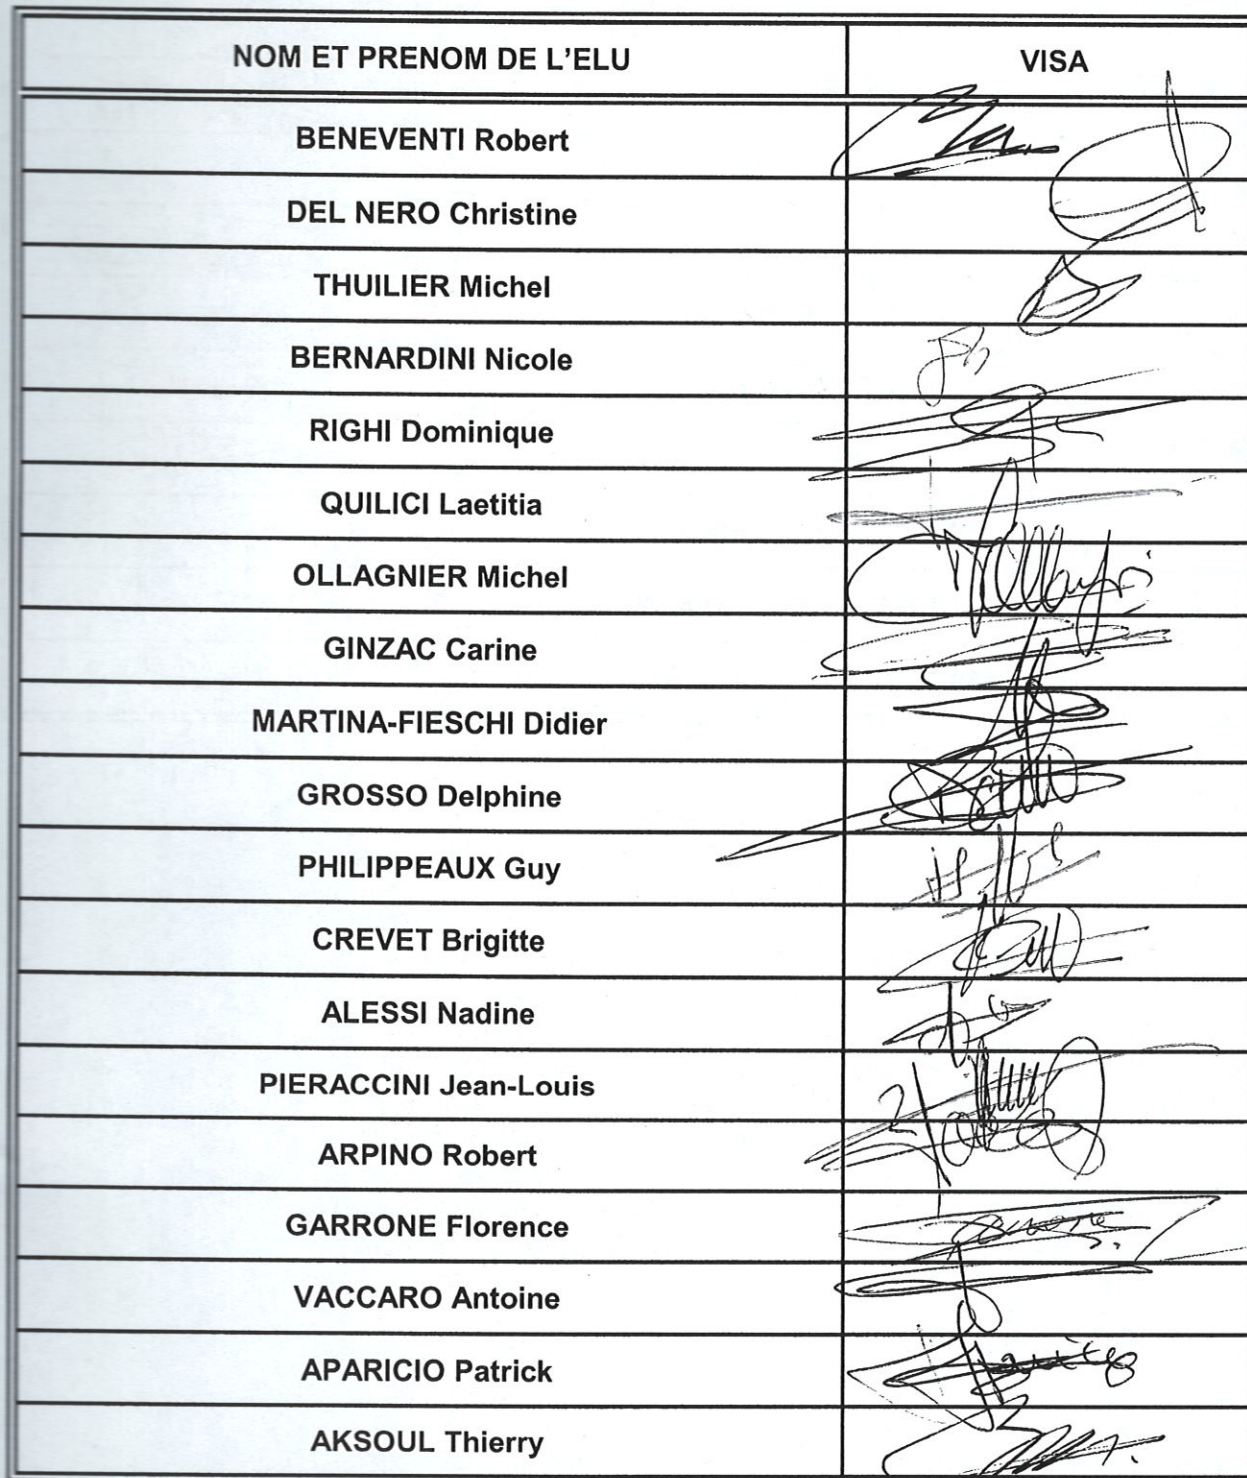 NOM ET PRENOM DE L'ELU VISA
BENEVENTI Robert
DEL NERO Christine
THUILIER Michel
BERNARDINI Nicole
RIGHI Dominique
QUILICI Laetitia
OLLAGNIER Michel
GINZAC Carine
MARTINA-FIESCHI Didier
GROSSO Delphine
PHILIPPEAUX Guy
CREVET Brigitte
ALESSI Nadine
PIERACCINI Jean-Louis
ARPINO Robert
GARRONE Florence
VACCARO Antoine
APARICIO Patrick
AKSOUL Thierry